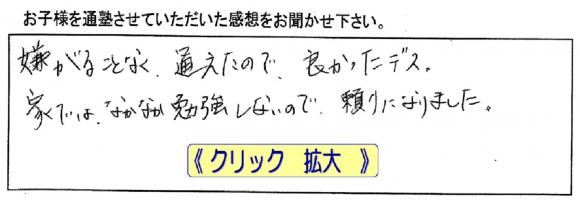 お子様を通塾させていただいた感想をお聞かせ下さい。
嫌がることなく、通えたので、良かったデス。
家では、なかなか勉強しないので、頼りになりました。
《クリック 拡大 》